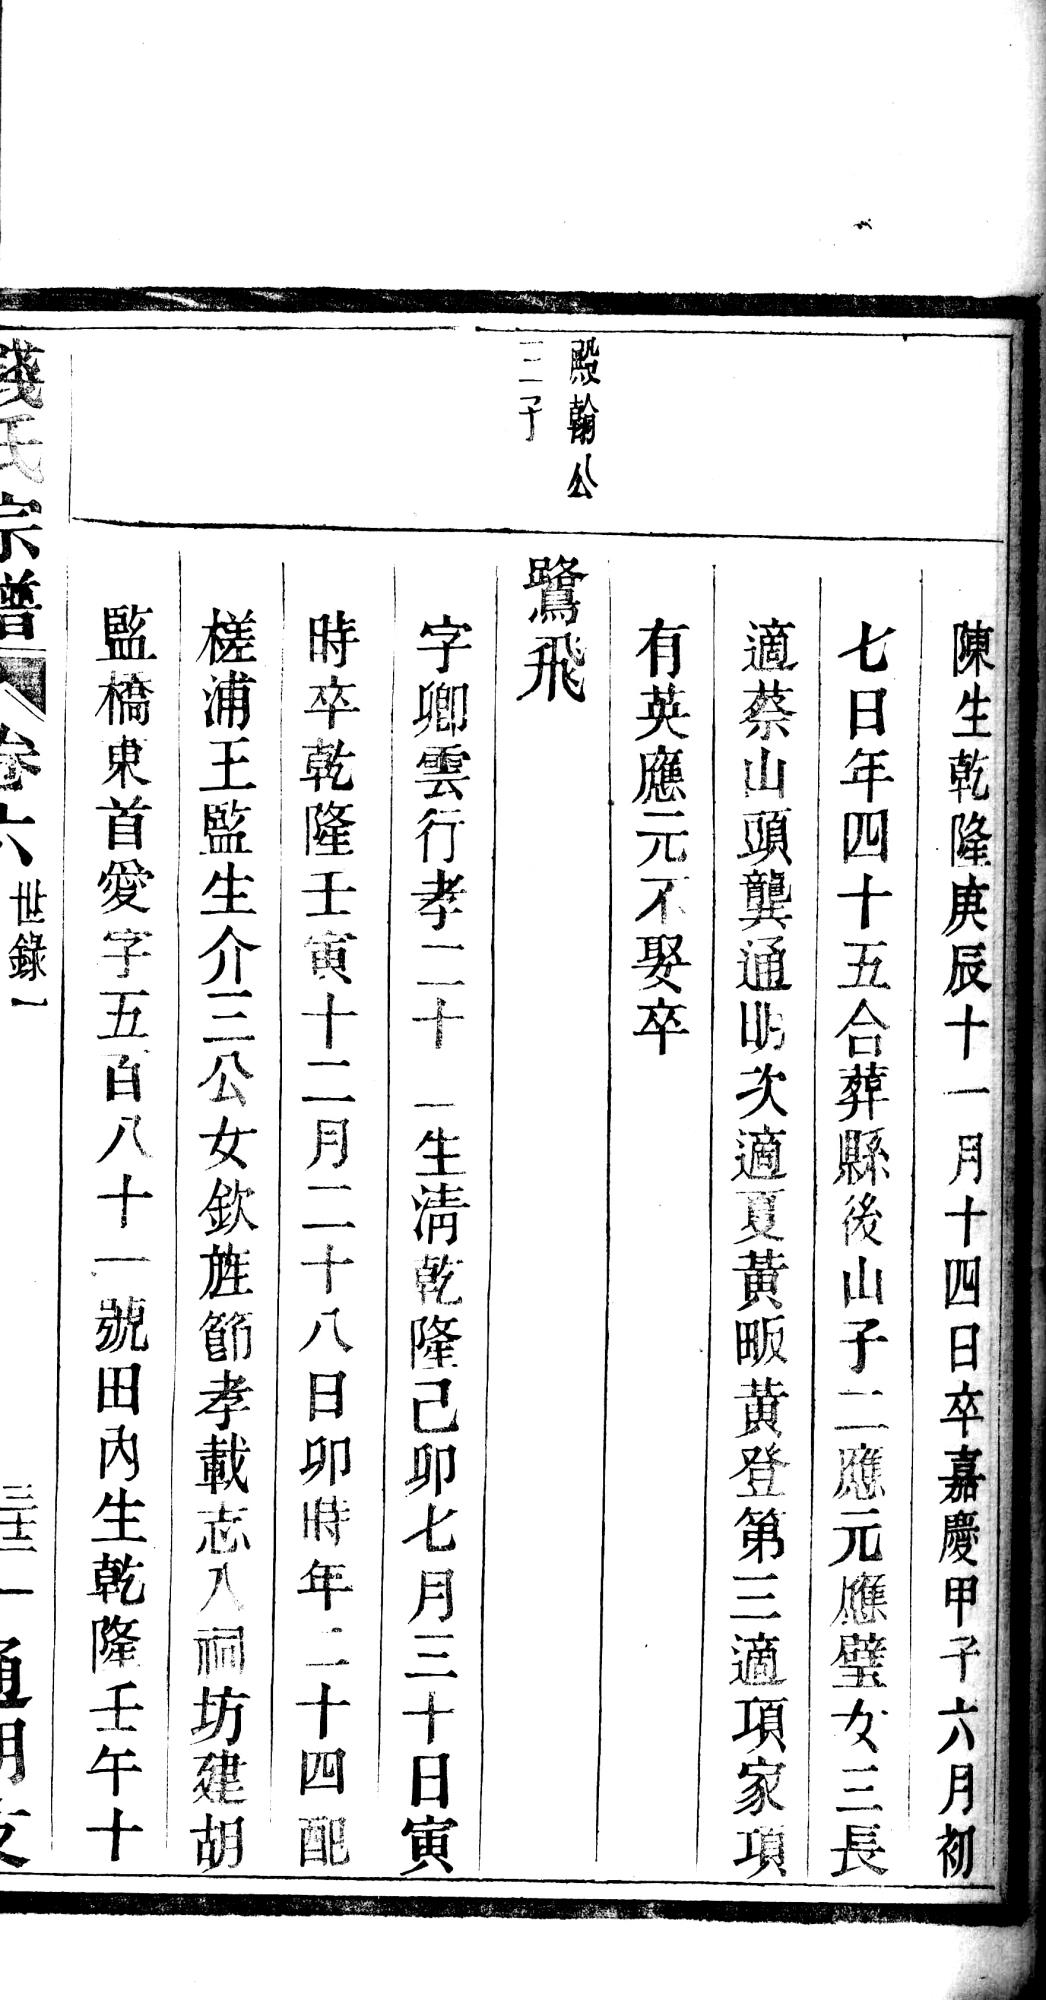 陳生乾隆庚辰十一月十四日卒嘉慶甲子六月初
七日年四十五合葬縣後山子二應元應璧女三長
適蔡山頭龔通明次適夏黃畈黃登第三適項家項
有英應元不娶卒
殿翰公
三子
鷺飛
字卿雲行孝二十一生清乾隆己卯七月三十日寅
時卒乾隆壬寅十二月二十八日卯時年二十四配
槎浦王監生介三公女欽旌節孝載志入祠坊建胡
監橋東首愛字五百八十一號田內生乾隆壬午十
錢氏宗譜 卷六 世錄一 三十二 通明支